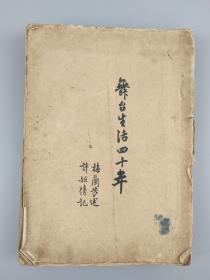 舞台生活四十年
梅蘭芳述
許姬傳記